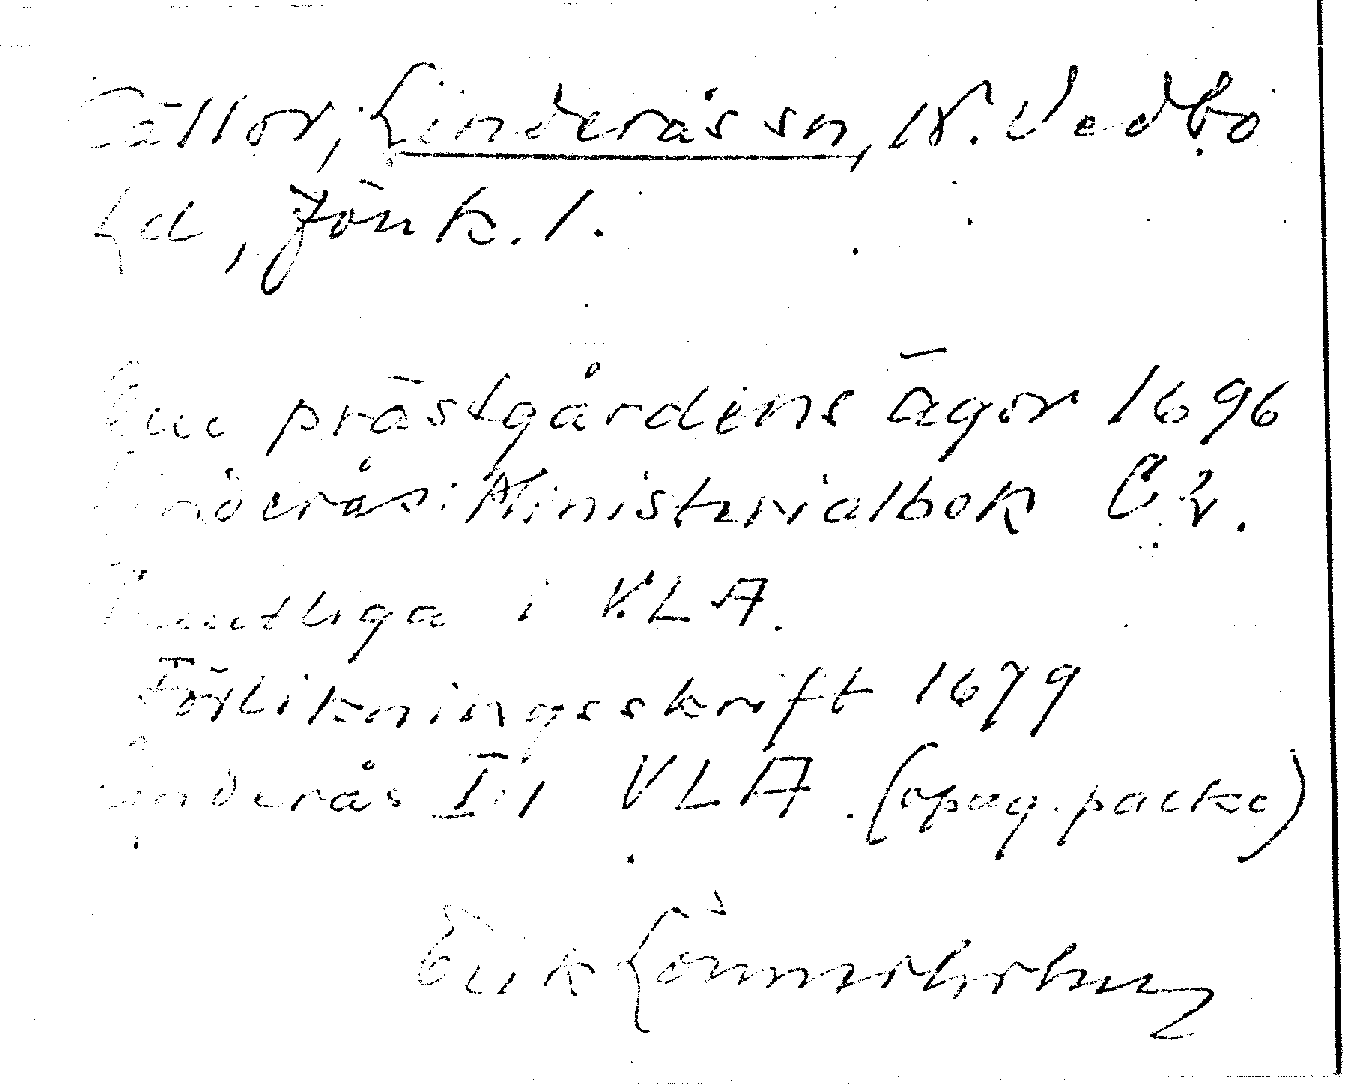 Källor, Linderås sn, N. Vedbo
hd, Jönk. l.
Om prästgårdens ägor 1696
Linderås: Ministerialbok C 2.
Samtliga i VLA.
Förlikningsskrift 1679
Linderås I:1 VLA. (opag. packe)
Erik